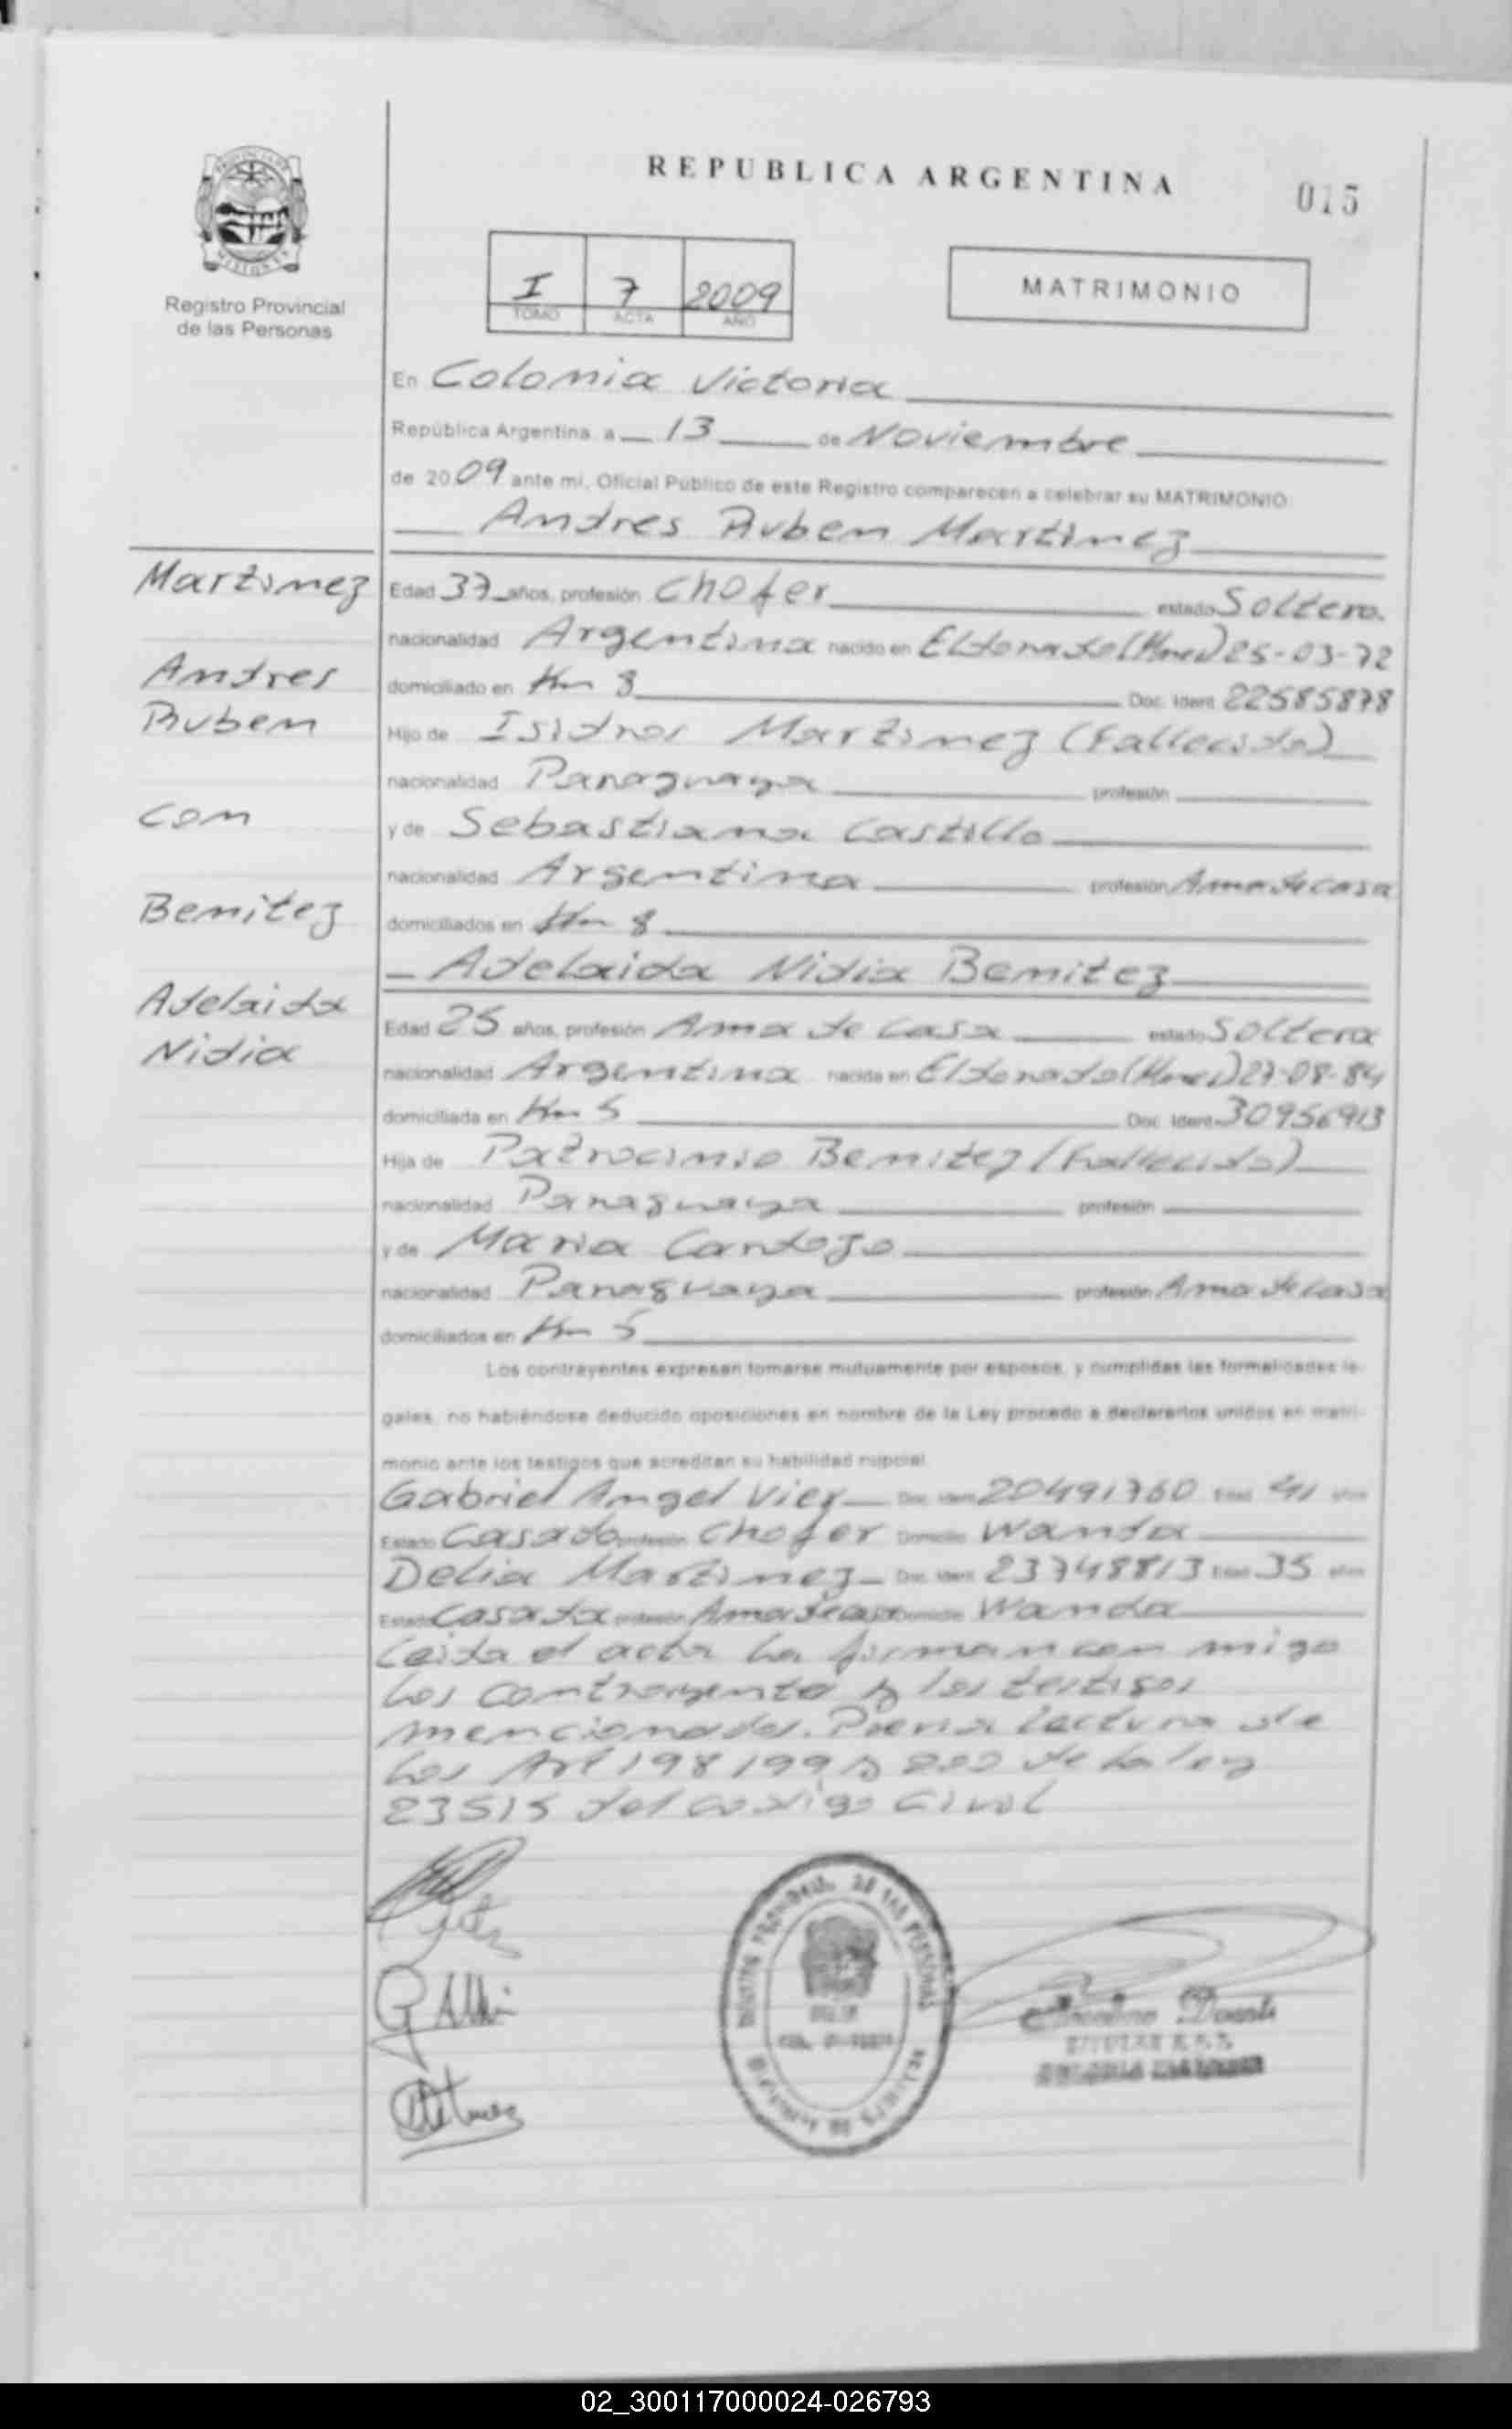 REPUBLICA ARGENTINA
015
PROVINCIA DE MISIONES
Registro Provincial
de las Personas
I 7 2009
TOMO ACTA AÑO
MATRIMONIO
En Colonia Victoria
República Argentina, a 13 de Noviembre
de 2009 ante mi, Oficial Público de este Registro comparecen a celebrar su MATRIMONIO:
Andres Ruben Martinez
Martinez
Edad 37 años, profesión Chofer estado Soltero.
nacionalidad Argentina nacido en Eldorado (Mnes) 25-03-72
Andres
domiciliado en Km 8 Doc. Ident. 22585878
Ruben
Hijo de Isidro Martinez (Fallecido)
nacionalidad Paraguaya profesión
Con
y de Sebastiana Castillo
nacionalidad Argentina profesión Ama de casa
Benitez
domiciliados en Km 8
Adelaida Nidia Benitez
Adelaida
Edad 25 años, profesión Ama de Casa estado Soltera
Nidia
nacionalidad Argentina nacida en Eldorado (Mnes) 27-08-84
domiciliada en Km 5 Doc. Ident. 30956913
Hija de Patrocinio Benitez (Fallecido)
nacionalidad Paraguaya profesión
y de Maria Cardozo
nacionalidad Paraguaya profesión Ama de Casa
domiciliados en Km 5
Los contrayentes expresan tomarse mutuamente por esposos, y cumplidas las formalidades le-
gales, no habiéndose deducido oposiciones en nombre de la Ley procedo a declararlos unidos en matri-
monio ante los testigos que acreditan su habilidad nupcial.
Gabriel Angel Viey Doc. Ident. 20491760 Edad 41 años
Estado Casado profesión Chofer Domicilio Wanda
Delia Martinez Doc. Ident. 23748813 Edad 35 años
Estado Casada profesión Ama de casa Domicilio Wanda
Leida el acta la firman con migo
los contrayente y los testigos
mencionados. Previa lectura de
los Art 198 199 y 200 de la ley
23515 del codigo Civil
REGISTRO PROVINCIAL DE LAS PERSONAS
02_300117000024-026793